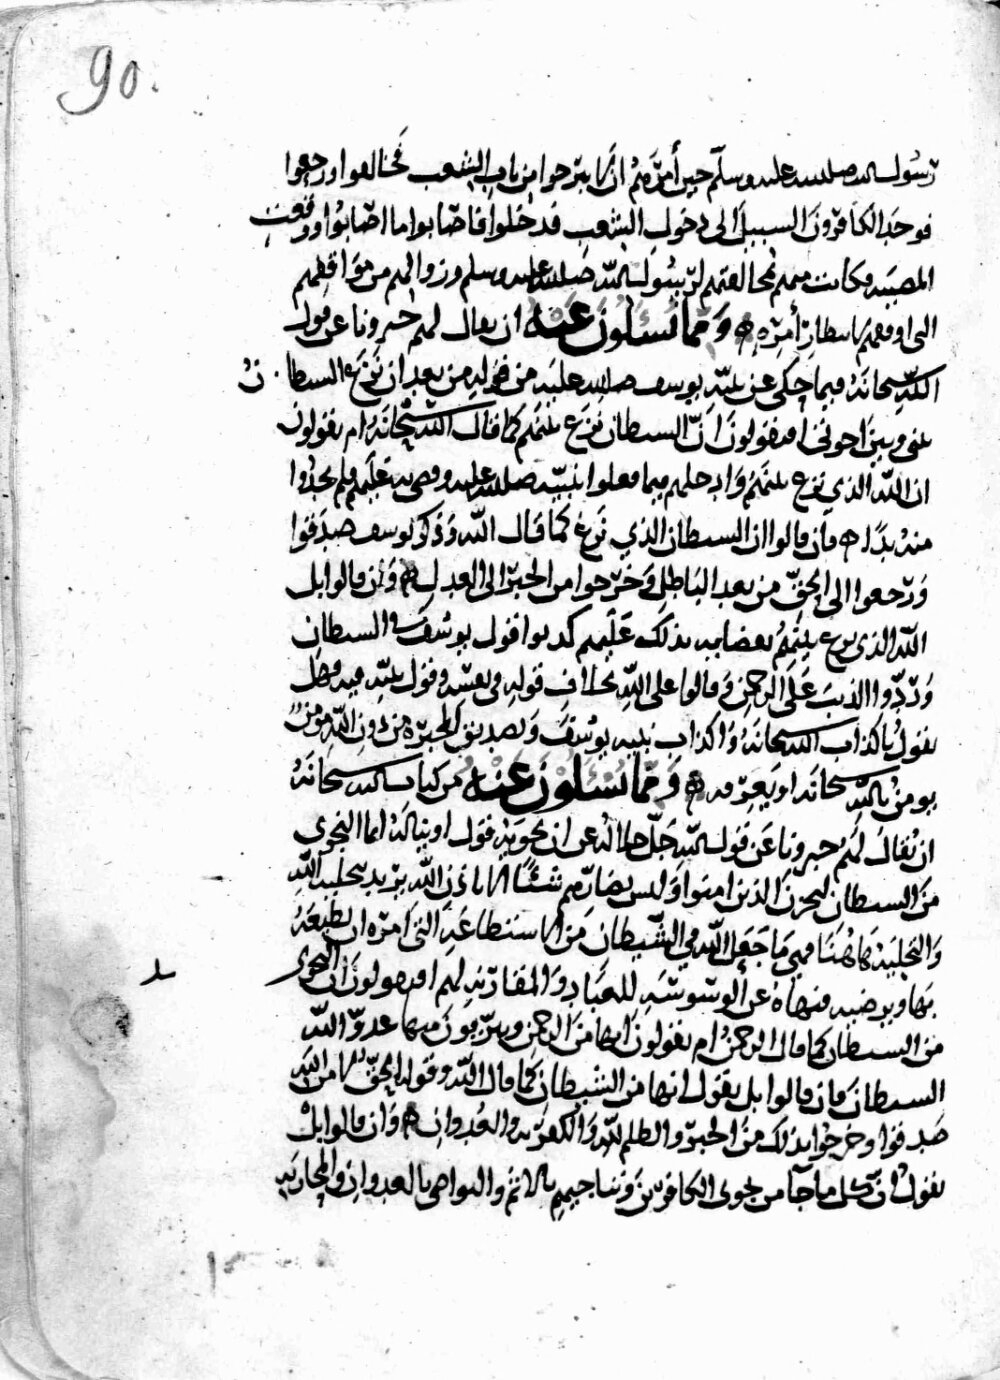 90.
رسول الله صلى الله عليه وسلم حين أمرهم ان لا يبرحوا من باب الشعب فخالفوا ورجعوا
فوجد الكافرون السبيل الى دخول الشعب فدخلوا فاصابوا ما اصابوا ووقعت
المصيبه وكانت منهم بمخالفتهم لرسول الله صلى الله عليه وسلم وزوالهم من مواقفهم
التي اوقفهم امره ومما يسئلون عنه ان يقال لهم خبرونا عن قول
الله سبحانه فيما حكى عن نبيه يوسف صلى الله عليه من قوله من بعد ان نزغ الشيطان
بيني وبين اخوتي افتقولون ان الشيطان نزغ بينهم كما قال الله سبحانه ام يقولون
ان الله الذي نزغ بينهم وادخلهم فيما فعلوا بنبيه صلى الله عليه وقضى به عليهم فلم يجدوا
منه بدا فان قالوا ان الشيطان الذي نزغ كما قال الله وذكر يوسف صدقوا
ورجعوا الى الحق من بعد الباطل وخرجوا من الجبر الى العدل وان قالوا بل
الله الذي نزغ بينهم بقضايه بذلك عليهم كذبوا قول يوسف في الشيطان
وردوا الذنب على الرحمن وقالوا على الله بخلاف قوله في نفسه وقول نبيه فيه وهل
يقول باكذاب الله سبحانه واكذاب نبيه يوسف وتصديق المجبره من دون الله مومن
يومن بالله سبحانه او يعرفه ومما يسئلون عنه من كتاب الله سبحانه
ان يقال لهم خبرونا عن قول الله جل جلاله عن ان يحويه قول او يناله انما النجوى
من الشيطان ليحزن الذين امنوا وليس بضارهم شئا الا باذن الله يريد بتخلية الله
والتخلية هاهنا فهي ما جعل الله في الشيطان من الاستطاعة التي امره ان يطيعه
بها ويرضيه فنهاه عن الوسوسة للعباد والمقارنة لهم افيقولون ان النجوى
من الشيطان كما قال الرحمن ام يقولون انها من الرحمن ويبرؤن منها عدو الله
الشيطان فان قالوا بل يقول انها من الشيطان كما قال الله وقوله الحق لا من الله
صدقوا وخرجوا بذلك من الجبر والظلم لله والكفر به والعدوان وان قالوا بل
يقول ان كل ما جآ من نجوى الكافرين وتناجيهم بالاثم والتواصي بالعدوان والمحاربة